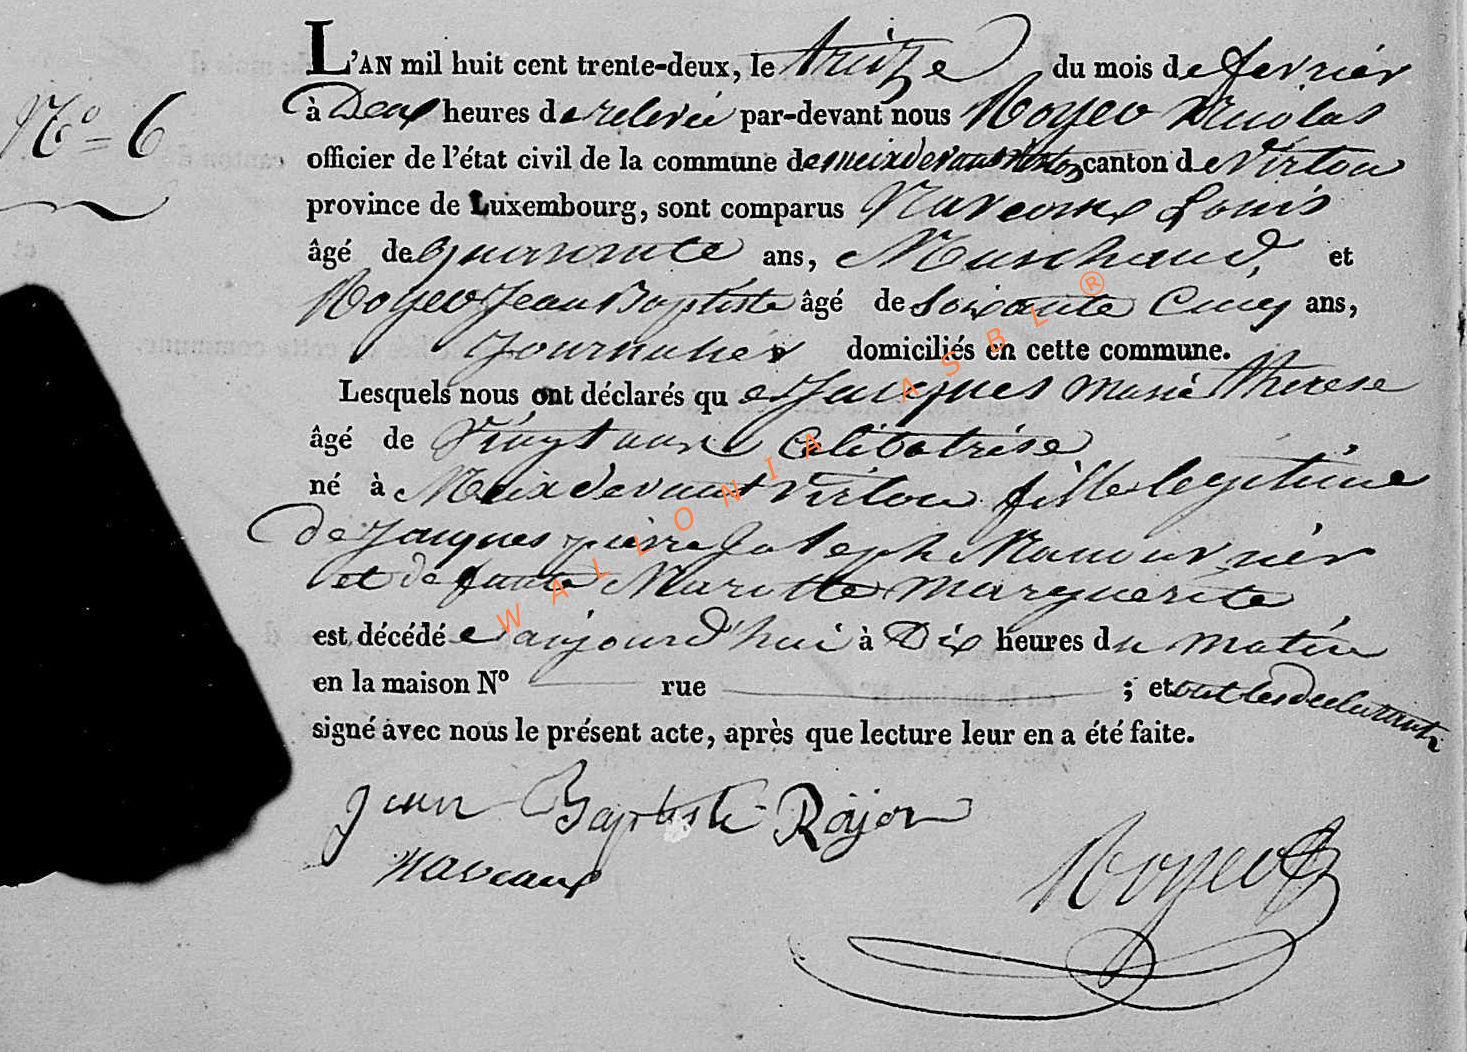 L'AN mil huit cent trente-deux, le treize du mois de fevrier
N.º = 6
à Deux heures de relevée par-devant nous Royer Nicolas
officier de l'état civil de la commune de meixdevantvirton canton de Virton
province de Luxembourg, sont comparus Naveaux Louis
âgé de quarante ans, Marchand, et
Royer Jean Baptiste âgé de Soixante Cincq ans,
Journalier domiciliés en cette commune.
Lesquels nous ont déclarés que Jacques Marie Therese
âgé de Vingt ans Celibatrise
né à Meixdevant Virton fille legitime
de Jacques pierre Joseph Manouvrier
et defunte Marguerite
est décédé e aujourd'hui à Dix heures du matin
en la maison Nº rue ; et ont les declarants
signé avec nous le présent acte, après que lecture leur en a été faite.
Jean Baptiste Rojer
Naveaux
Royer
WALLONIA ASBL ®